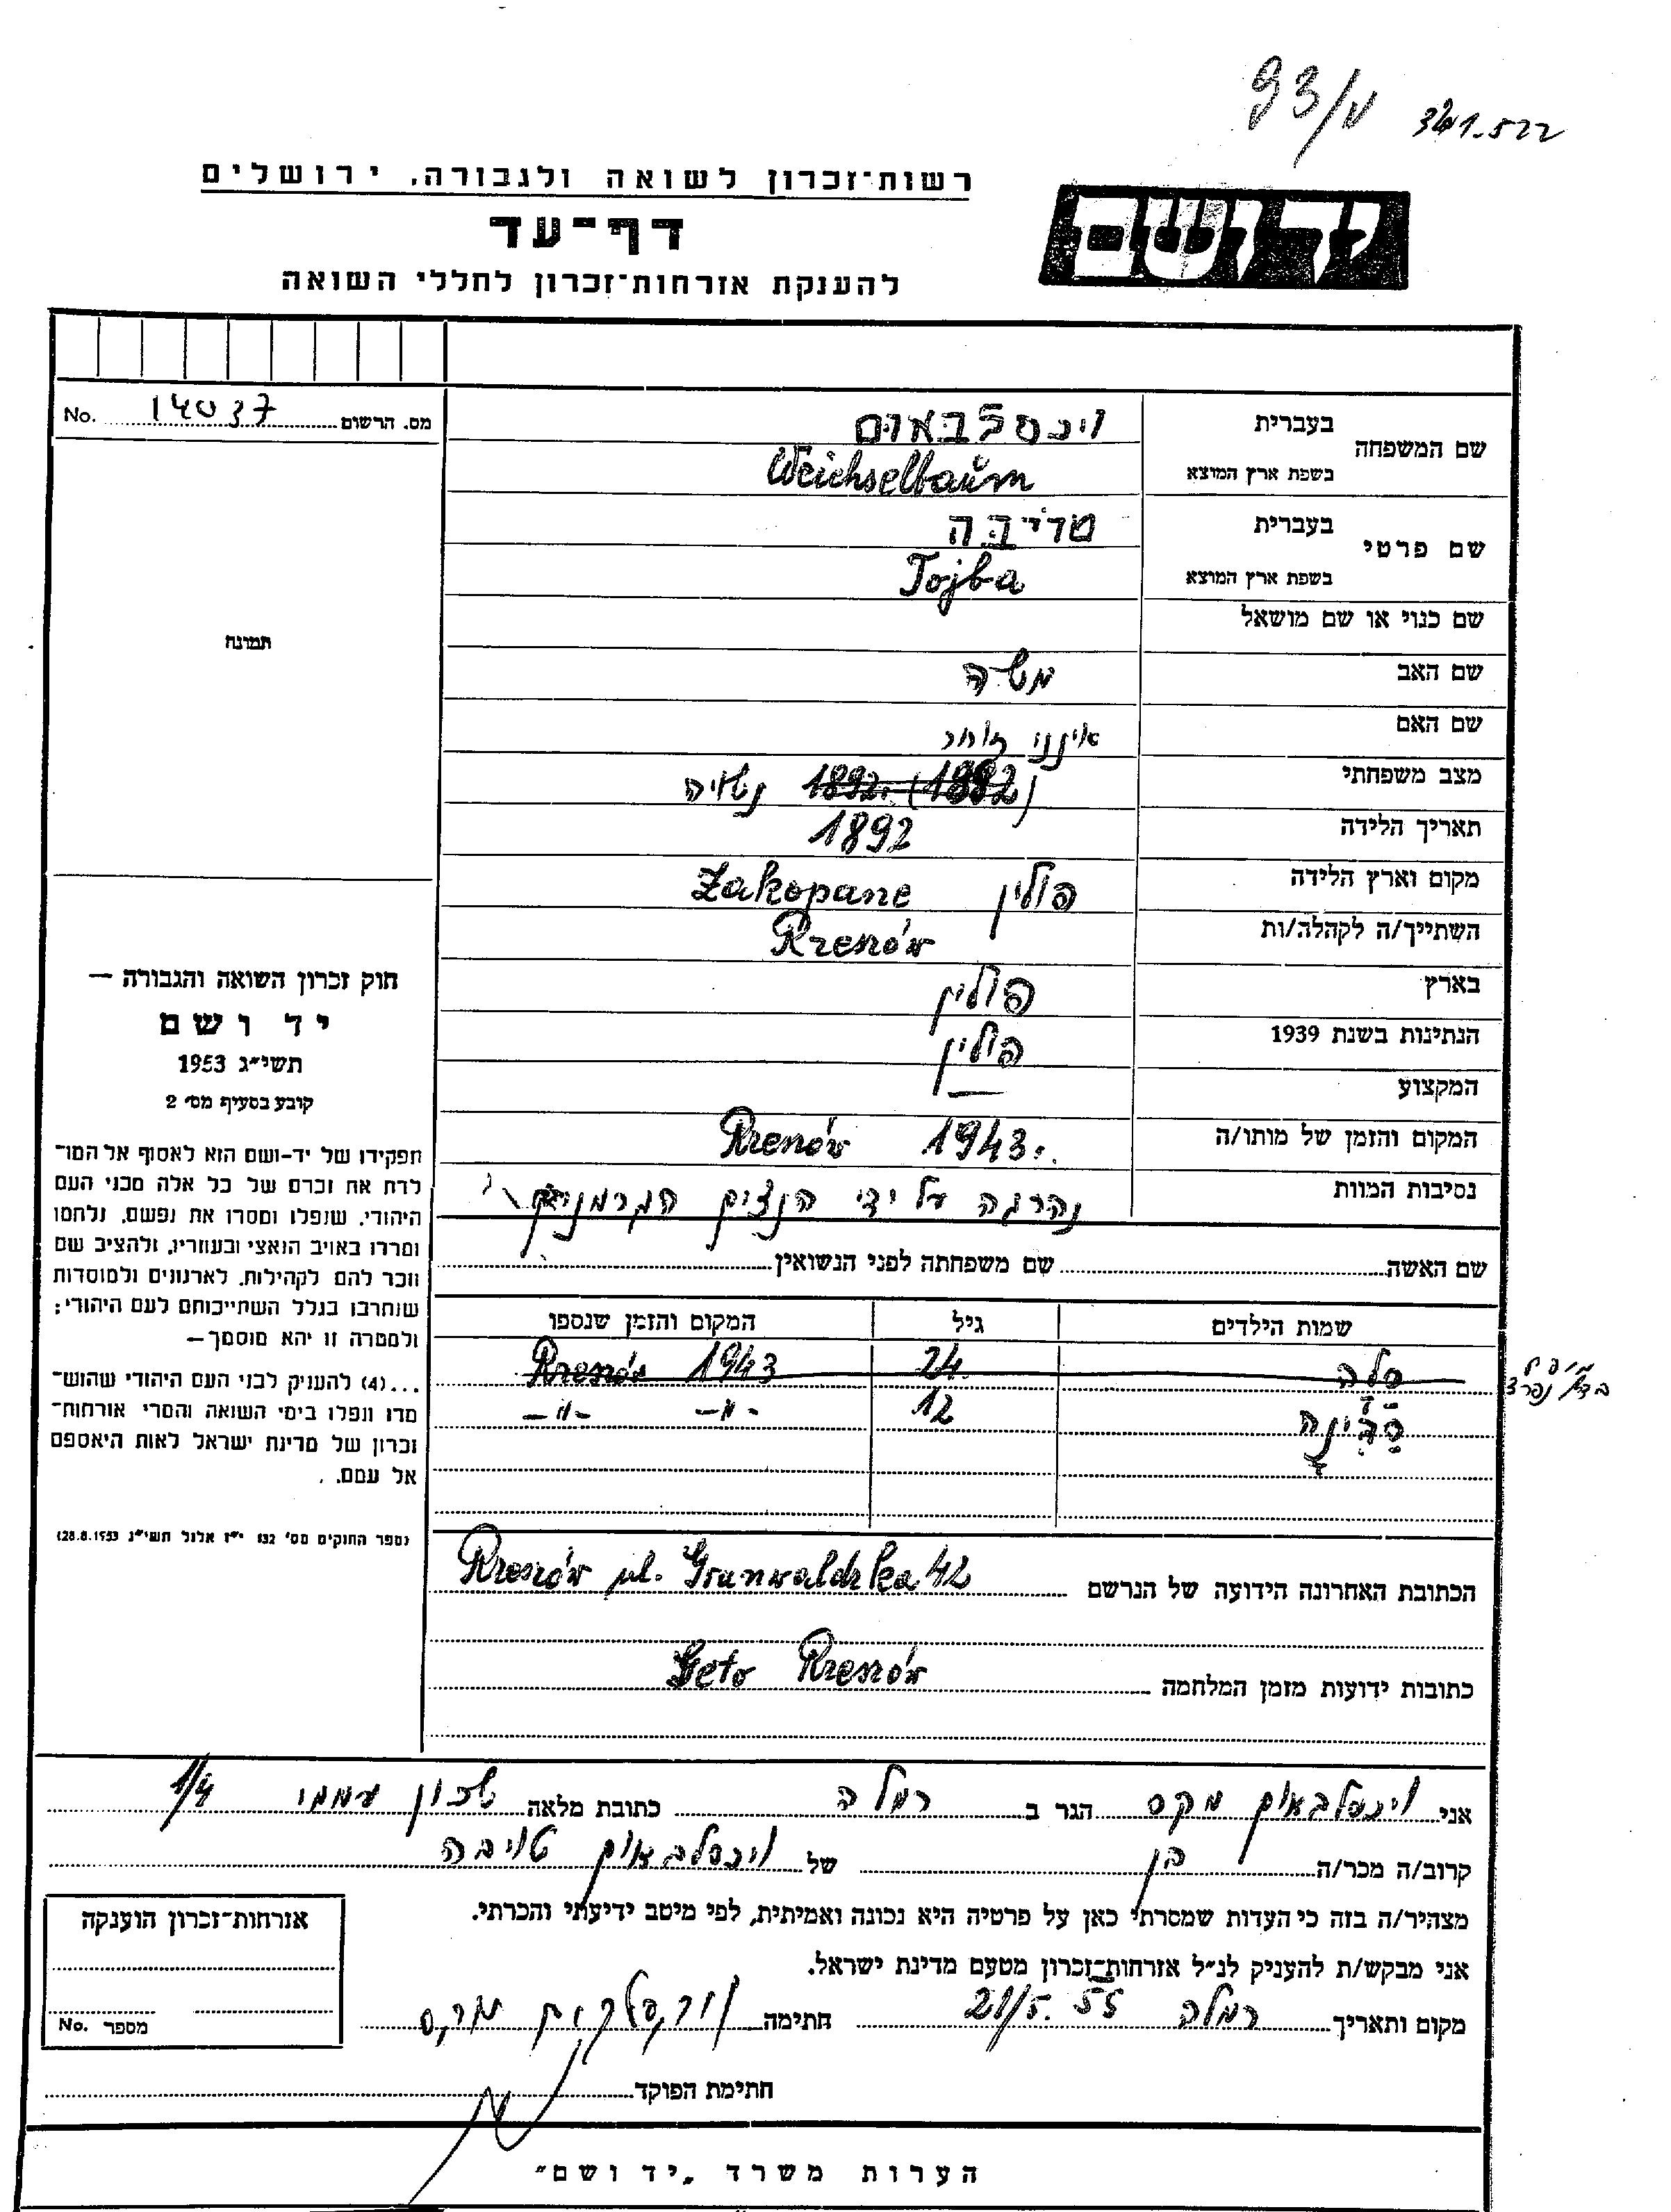 93/ש 341.522
רשות־זכרון לשואה ולגבורה, ירושלים
יד ושם
דף־עד
להענקת אזרחות־זכרון לחללי השואה
מס. הרשום 14037 No.
תמונה
שם המשפחה
בעברית ויכסלבאום
בשפת ארץ המוצא Weichselbaŭm
שם פרטי
בעברית טויבה
בשפת ארץ המוצא Tojba
שם כנוי או שם מושאל
שם האב משה
שם האם אינני זוכר
מצב משפחתי (1882) 1892. נשואה
תאריך הלידה 1892
מקום וארץ הלידה פולין Zakopane
השתייך/ה לקהלה/ות Rzeszów
בארץ פולין
הנתינות בשנת 1939 פולין
המקצוע —
המקום והזמן של מותו/ה Rzeszów 1943.
נסיבות המוות נהרגה על ידי הנצים הגרמנים
שם האשה שם משפחתה לפני הנשואין
שמות הילדים גיל המקום והזמן שנספו
סלה 24 Rzeszów 1943
12 -״- -״-
בדף נפרד
חוק זכרון השואה והגבורה —
יד ושם
תשי״ג 1953
קובע בסעיף מס׳ 2
תפקידו של יד-ושם הוא לאסוף אל המו־
לדת את זכרם של כל אלה מבני העם
היהודי, שנפלו ומסרו את נפשם, נלחמו
ומרדו באויב הנאצי ובעוזריו, ולהציב שם
וזכר להם לקהילות, לארגונים ולמוסדות
שנחרבו בגלל השתייכותם לעם היהודי;
ולמטרה זו יהא מוסמך—
...(4) להעניק לבני העם היהודי שהוש־
מדו ונפלו בימי השואה והמרי אזרחות־
זכרון של מדינת ישראל לאות היאספם
אל עמם.
(ספר החוקים מס׳ 132 י״ז אלול תשי״ג 28.8.1953)
הכתובת האחרונה הידועה של הנרשם Rzeszów ul. Grunwaldzka 42
כתובות ידועות מזמן המלחמה Geto Rzeszów
אני ויכסלבאום מקס הגר ב רמלה כתובת מלאה שכון עממי 1/4
קרוב/ה מכר/ה בן של ויכסלבאום טויבה
מצהיר/ה בזה כי העדות שמסרתי כאן על פרטיה היא נכונה ואמיתית, לפי מיטב ידיעתי והכרתי.
אני מבקש/ת להעניק לנ״ל אזרחות־זכרון מטעם מדינת ישראל.
מקום ותאריך רמלה 21/5. 55 חתימה ויכסלבאום מקס
חתימת הפוקד
אזרחות־זכרון הוענקה
מספר No.
הערות משרד „יד ושם״